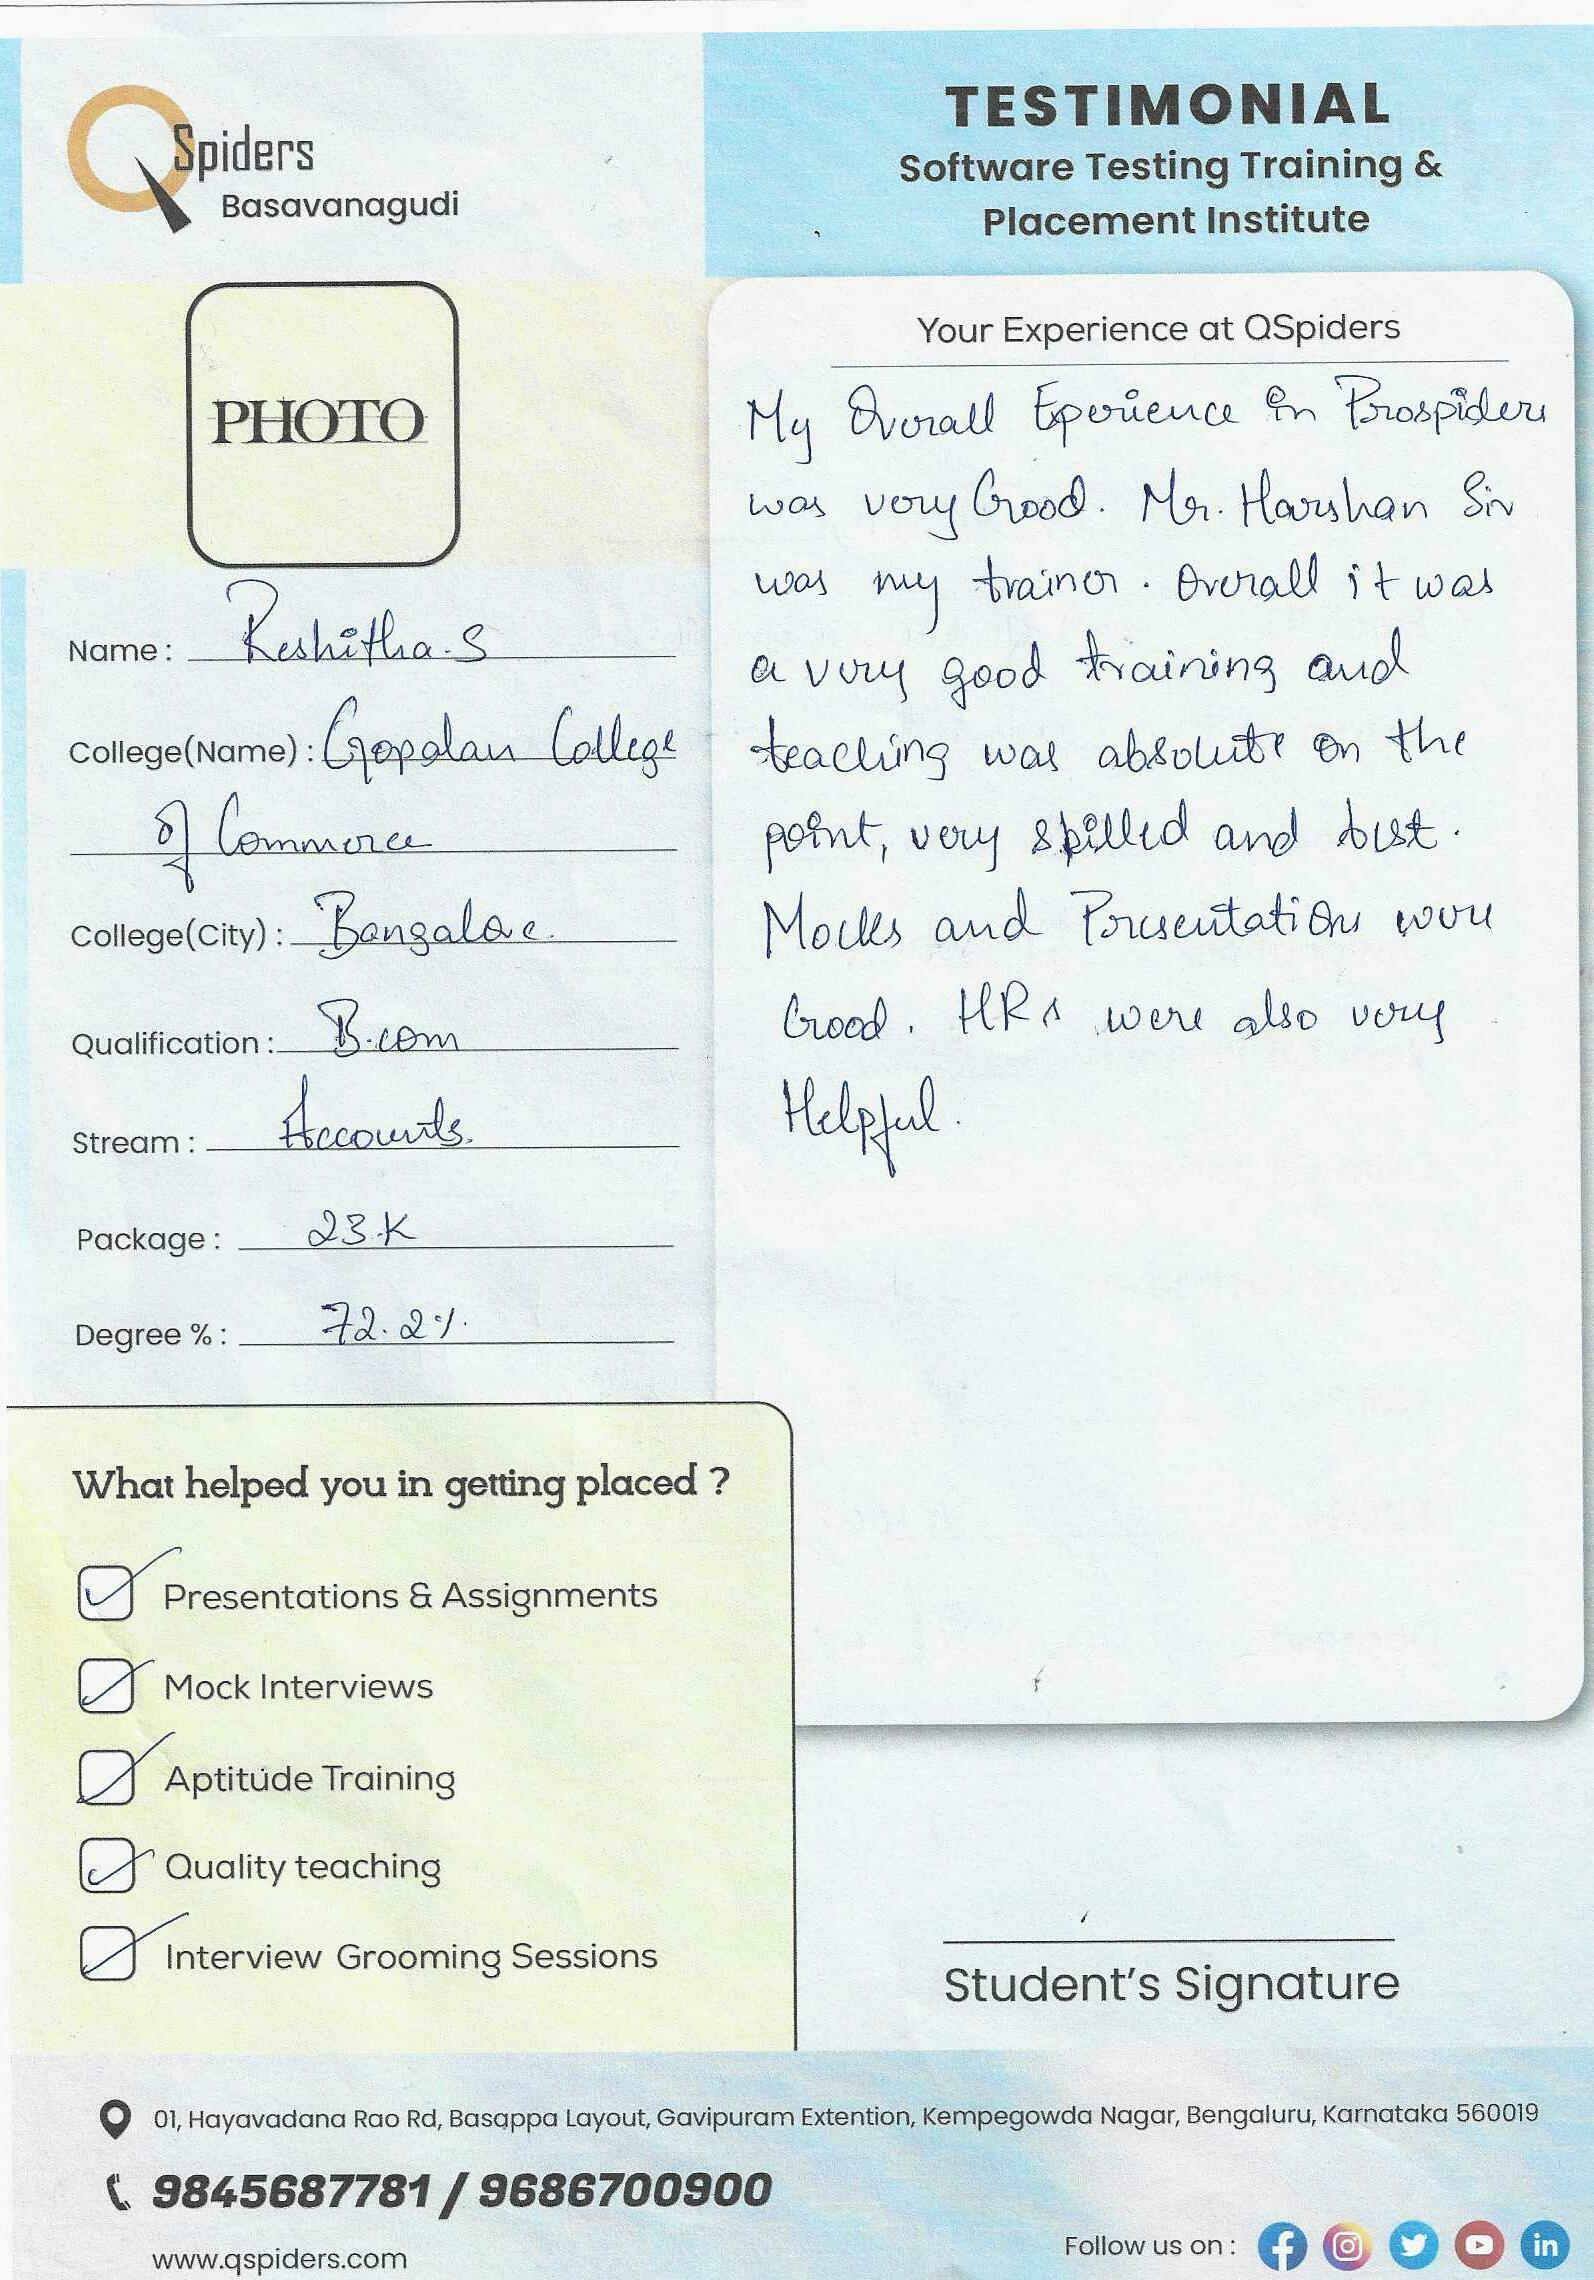 QSpiders
Basavanagudi
TESTIMONIAL
Software Testing Training &
Placement Institute
PHOTO
Name : Reshitha.S
College(Name) : Gopalan College
of Commerce
College(City) : Bangalore.
Qualification : B.com
Stream : Accounts.
Package : 23.K
Degree % : 72.2%.
Your Experience at QSpiders
My Overall Eperience in Prospiders
was very Good. Mr. Harshan Sir
was my trainer. Overall it was
a very good training and
teaching was absolute on the
point, very spilled and best.
Mocks and Presentations were
Good. HRs were also very
Helpful.
What helped you in getting placed ?
Presentations & Assignments
Mock Interviews
Aptitude Training
Quality teaching
Interview Grooming Sessions
Student's Signature
01, Hayavadana Rao Rd, Basappa Layout, Gavipuram Extention, Kempegowda Nagar, Bengaluru, Karnataka 560019
9845687781 / 9686700900
www.qspiders.com
Follow us on :